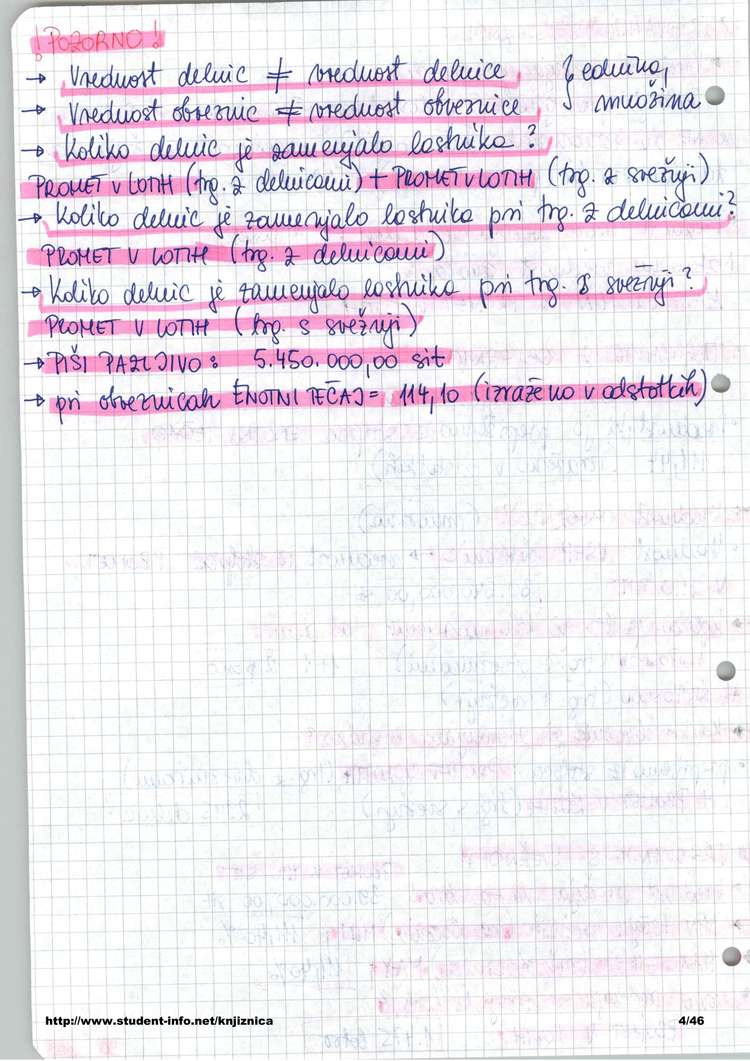 ! POZORNO !
→ Vrednost delnic ≠ vrednost delnice } ednina,
→ Vrednost obveznic ≠ vrednost obveznice } množina
→ Koliko delnic je zamenjalo lastnika?
PROMET V LOTIH (trg. z delnicami) + PROMET V LOTIH (trg. z svežnji)
→ Koliko delnic je zamenjalo lastnika pri trg. z delnicami?
PROMET V LOTIH (trg. z delnicami)
→ Koliko delnic je zamenjalo lastnika pri trg. s svežnji?
PROMET V LOTIH (trg. s svežnji)
→ PIŠI PAZLJIVO: 5.450.000,00 sit
→ pri obveznicah ENOTNI TEČAJ = 114,10 (izraženo v odstotkih)
http://www.student-info.net/knjiznica 4/46